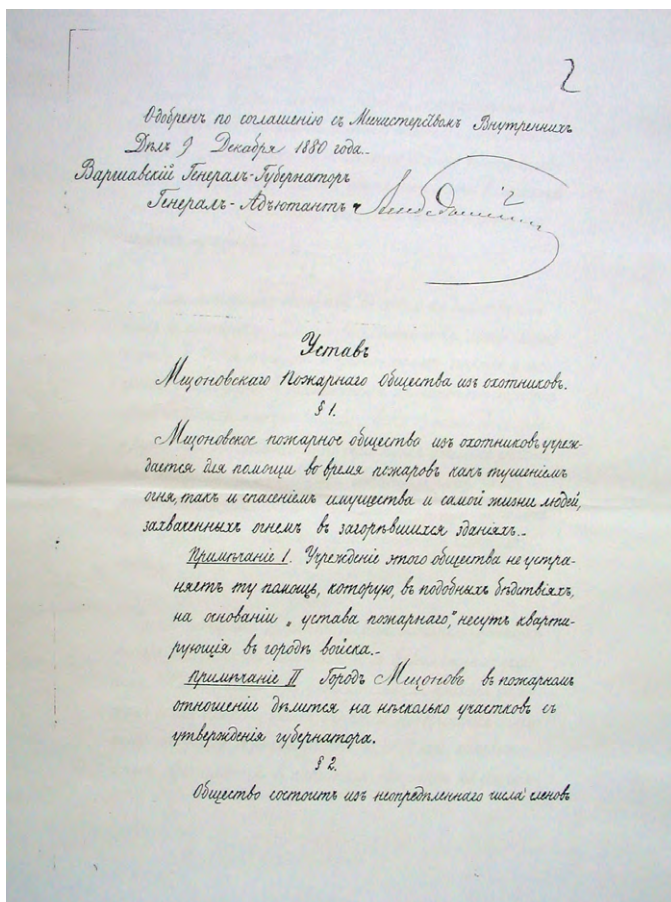 2
Одобренъ по соглашенію съ Министерствомъ Внутреннихъ
Дѣлъ 9 Декабря 1880 года.
Варшавскій Генералъ-Губернаторъ
Генералъ-Адъютантъ
Уставъ
Мщоновскаго Пожарнаго общества изъ охотниковъ.
§ 1.
Мщоновское пожарное общество изъ охотниковъ учреж-
дается для помощи во время пожаровъ какъ тушеніемъ
огня, такъ и спасеніемъ имущества и самой жизни людей,
захваченныхъ огнемъ въ загорѣвшихся зданіяхъ.-
Примѣчаніе I. Учрежденіе этого общества не устра-
няетъ ту помощь, которую, въ подобныхъ бѣдствіяхъ,
на основаніи „устава пожарнаго", несутъ кварти-
рующія въ городѣ войска.-
Примѣчаніе II Городъ Мщоновъ въ пожарномъ
отношеніи дѣлится на нѣсколько участковъ съ
утвержденія губернатора.
§ 2.
Общество состоитъ изъ неопредѣленнаго числа членовъ